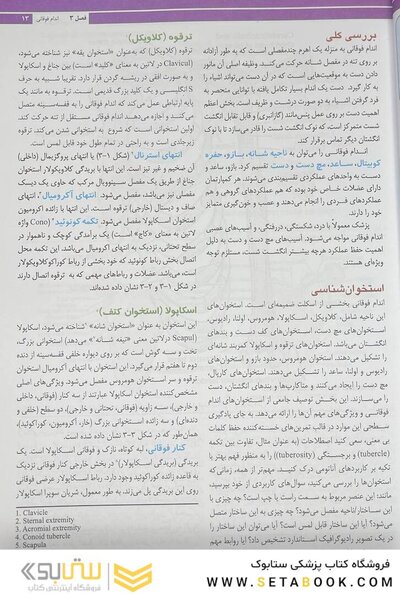 فصل ۳ اندام فوقانی ۱۳
بررسی کلی
اندام فوقانی به منزله یک اهرم چندمفصلی است که به طور آزادانه
بر روی تنه در مفصل شانه حرکت می‌کند. وظیفه اصلی آن مانور
دادن دست به موقعیت‌هایی است که در آن دست می‌تواند اشیاء را
به کار گیرد. دست یک اندام بسیار تکامل یافته با توانایی منحصر به
فرد گرفتن اشیاء به دو صورت درشت و ظریف است. بخش اعظم
اهمیت دست بر روی عمل پنس‌مانند (گازانبری) و قابل تقابل انگشت
شست متمرکز است، که نوک انگشت شست را قادر می‌سازد تا با نوک
انگشتان دیگر تماس برقرار کند.
اندام فوقانی را می‌توان به ناحیه شانه، بازو، حفره
کوبیتال، ساعد، مچ دست و دست تقسیم کرد. بازو، ساعد و
دست به واحدهای عملکردی تقسیم‌بندی می‌شوند. هر کمپارتمان
دارای عضلات خاص خود بوده که هم عملکردهای گروهی و هم
عملکردهای فردی را انجام می‌دهند و عصب و خون‌گیری متمایز
خود را دارند.
پزشک معمولاً با درد، شکستگی، دررفتگی، و آسیب‌های عصبی
اندام فوقانی مواجه می‌شود. آسیب‌های مچ دست و دست به دلیل
حفظ عملکرد هرچه بیشتر انگشت شست، مستلزم توجه
ویژه‌ای هستند.
استخوان‌شناسی
اندام فوقانی بخشی از اسکلت ضمیمه‌ای است. استخوان‌های
این ناحیه شامل، کلاویکل، اسکاپولا، هومروس، اولنا، رادیوس،
استخوان‌های مچ دست، استخوان‌های کف دست و بندهای
انگشتان می‌باشد. استخوان ترقوه و اسکاپولا کمربند شانه‌ای
را تشکیل می‌دهند. استخوان هومروس، حدود بازو و استخوان‌های
رادیوس و اولنا، ساعد را تشکیل می‌دهند. استخوان‌های کارپال،
مچ دست را ایجاد می‌کنند و متاکارپ‌ها و بندهای انگشتان، دست
را می‌سازند. این بخش توصیف جامعی از استخوان‌های اندام
فوقانی و ویژگی‌های مهم آن‌ها را ارائه می‌دهد. به جای یادگیری
سطحی این موارد در قالب تمرین‌های خسته‌کننده حفظ کلمات
بی معنی، سعی کنید اصطلاحات (به عنوان مثال، تفاوت بین تکمه
(tubercle) و برجستگی (tuberosity)) را به منظور فهم بهتر با
تکیه بر کاربردهای آناتومی درک کنید. مهم‌تر از همه، زمانی که
استخوان‌ها را بررسی می‌کنید، سوال‌های کاربردی از خود بپرسید،
مانند: این عنصر مربوط به سمت راست یا چپ است؟ چه چیزی با
این ساختار/ناحیه مفصل می‌شود؟ چه چیزی به این ساختار متصل
می‌شود؟ آیا این ساختار قابل لمس است؟ آیا می‌توان این ساختار را
در یک تصویر رادیوگرافیک استاندارد تشخیص داد؟ آیا روابط مهم
ترقوه (کلاویکل)
ترقوه (کلاویکل) که به‌عنوان «استخوان یقه» نیز شناخته می‌شود،
(Clavicul در لاتین به معنای «کلید» است)؛ بین جناغ و اسکاپولا
و به صورت افقی در ریشه گردن قرار دارد. تقریبا شبیه به حرف
S انگلیسی و یک کلید بزرگ قدیمی است. ترقوه به مانند یک
پایه ارتباطی عمل می‌کند که اندام فوقانی را به قفسه‌سینه متصل
می‌کند و اجازه می‌دهد اندام فوقانی مستقل از تنه حرکت کند.
اولین استخوانی است که شروع به استخوانی شدن می‌کند. ترقوه
زیرجلدی است و به راحتی در تمام طول خود قابل لمس است.
انتهای استرنال (شکل ۱-۳) یا انتهای پروگزیمال (داخلی)
آن ضخیم و غیر تیز است. این انتها با بریدگی کلاویکولار استخوان
جناغ از طریق یک مفصل سینوویال مرکب که حاوی یک دیسک
مفصلی نیز می‌باشد، مفصل می‌شود. انتهای آکرومیال، انتهای
صاف و دیستال (خارجی) ترقوه است. این انتها با زائده آکرومیون
استخوان اسکاپولا مفصل می‌شود. تکمه کونوئید (Cono واژه
لاتین به معنای «کاج» است)؛ یک برآمدگی کوچک و ناهموار در
سطح تحتانی، نزدیک به انتهای آکرومیال می‌باشد. این تکمه محل
اتصال بخش رباط کونوئید که خود بخشی از رباط کوراکوکلاویکولار
است، می‌باشد. عضلات و رباط‌های مهمی که به ترقوه اتصال دارند
در شکل ۱-۳ و ۲-۳ نشان داده شده‌اند.
اسکاپولا (استخوان کتف)
این استخوان به عنوان «استخوان شانه» شناخته می‌شود، اسکاپولا
(Scapul در لاتین معنی «تیغه شانه» می‌دهد) استخوانی بزرگ،
تخت و سه گوش است که بر روی دیواره خلفی قفسه‌سینه از دنده
دوم تا هفتم قرار می‌گیرد. این استخوان با انتهای آکرومیال استخوان
ترقوه و سر استخوان هومروس مفصل می‌شود. ویژگی‌های اصلی
مشخص کننده استخوان اسکاپولا عبارتند از سه کنار (فوقانی، داخلی
و خارجی)، سه زاویه (فوقانی، تحتانی و خارجی)، دو سطح (خلفی و
دنده‌ای) و سه زائده استخوانی بزرگ (خار، آکرومیون، کوراکوئید)،
همان‌طور که در شکل ۳-۳ نشان داده شده است.
کنار فوقانی، لبه کوتاه، نازک و فوقانی اسکاپولا است. یک
بریدگی (بریدگی اسکاپولار) در بخش خارجی کنار فوقانی نزدیک
به قاعده زائده کوراکوئید وجود دارد. رباط اسکاپولار عرضی فوقانی
روی این بریدگی پل می‌زند. به طور معمول، شریان سوپرا اسکاپولار
1. Clavicle
2. Sternal extremity
3. Acromial extremity
4. Conoid tubercle
5. Scapula
ستابوک
فروشگاه اینترنتی کتاب
فروشگاه کتاب پزشکی ستابوک
WWW.SETABOOK.COM